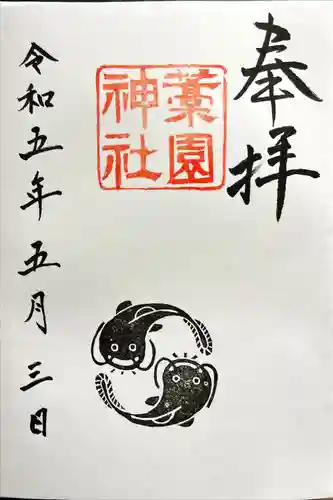 奉拝
葉園
神社
令和五年五月三日